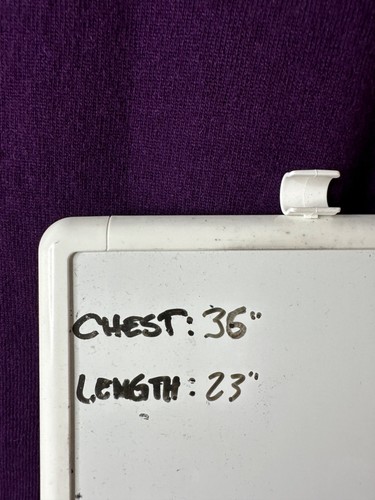 CHEST: 36"
LENGTH: 23"